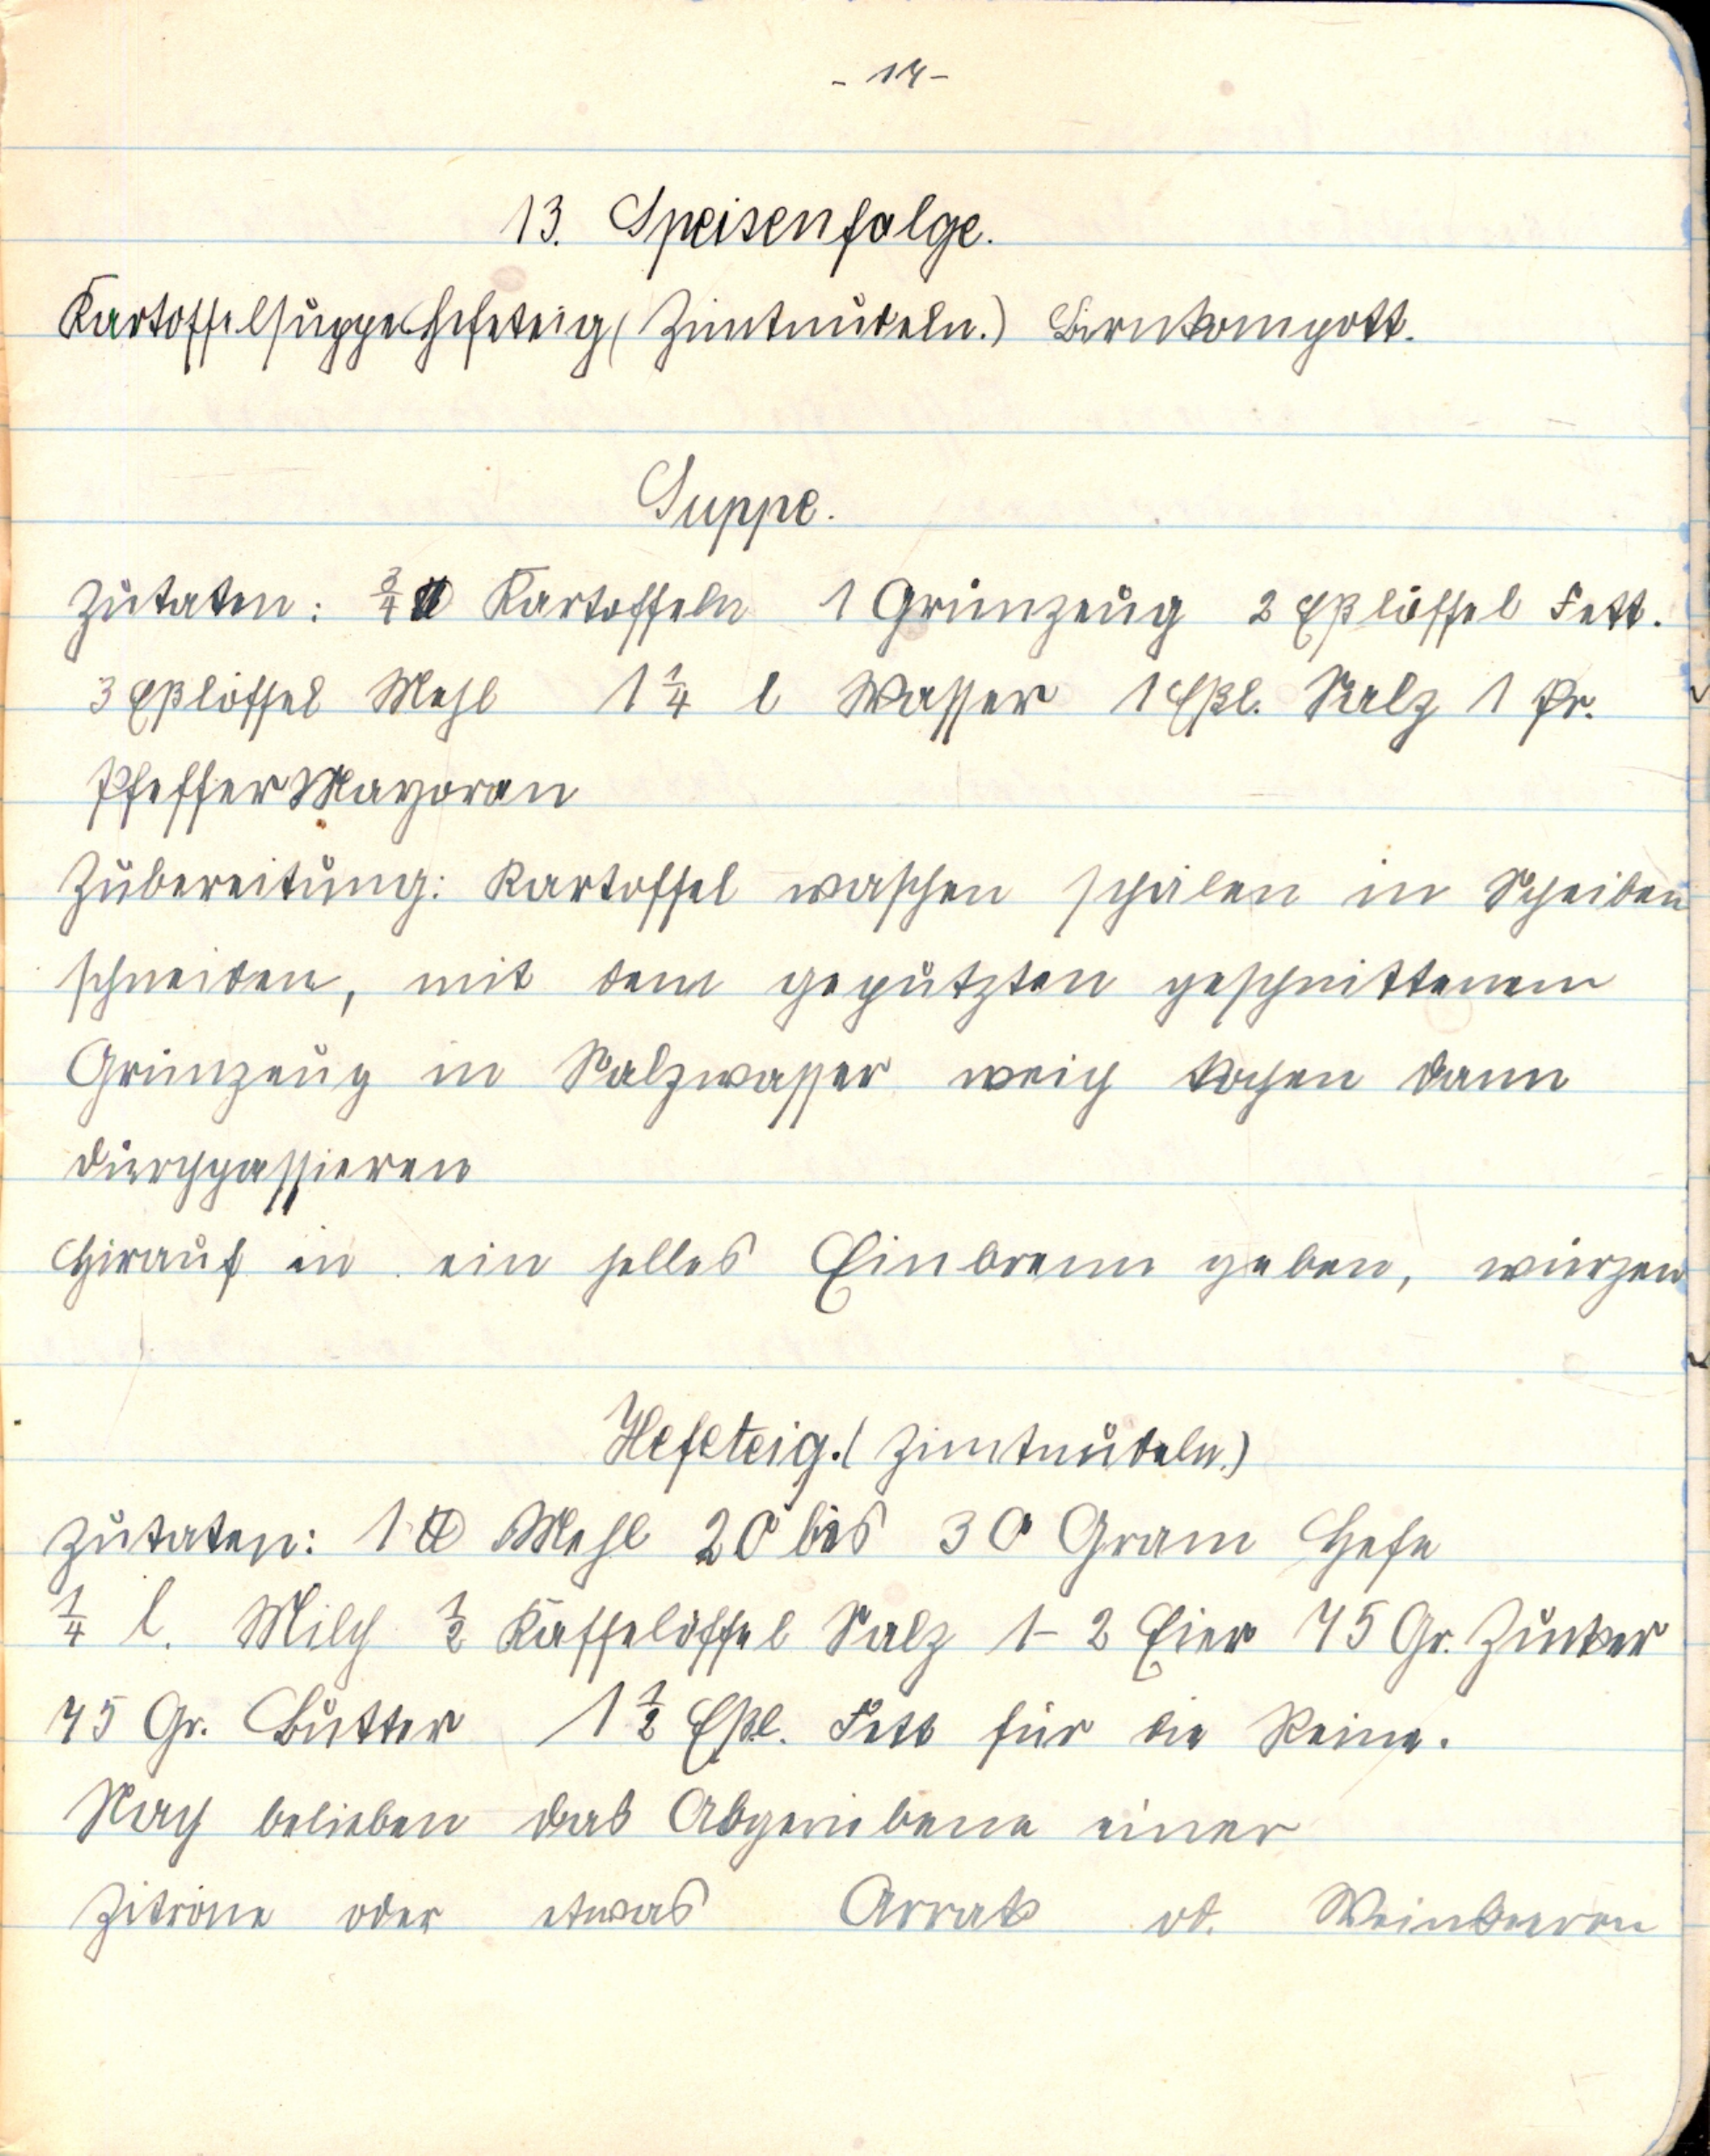 - 14 -
13. Speisenfolge.
Kartoffelsuppe Hefeteig (Zimtnudeln.) Birnkompott.
Suppe.
Zutaten: ¾ ℔ Kartoffeln 1 Grünzeug 2 Eßlöffel Fett.
3 Eßlöffel Mehl 1 ¼ l Wasser 1 Eßl. Salz 1 Pr.
Pfeffer Mayoran
Zubereitung: Kartoffel waschen schälen in Scheiben
schneiden, mit dem geputzten geschnittenem
Grünzeug in Salzwasser weich kochen dann
durchpassieren
Hirauf in ein helles Einbrenn geben, würzen
Hefeteig. (Zimtnudeln.)
Zutaten: 1 ℔ Mehl 20 bis 30 Gram Hefe
¼ l. Milch ½ Kaffelöffel Salz 1-2 Eier 75 Gr. Zucker
75 Gr. Butter 1 ½ Eßl. Fett für die Reine.
Nach belieben das Abgeriebene einer
Zitrone oder etwas Arrak od. Weinbeeren